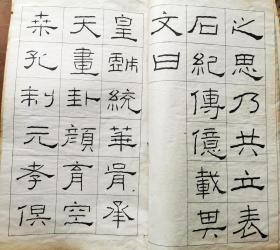 之思乃共立表
石紀傳億載其
文曰
皇戲統華胥承
天畫卦顏育空
桒孔制元孝俱